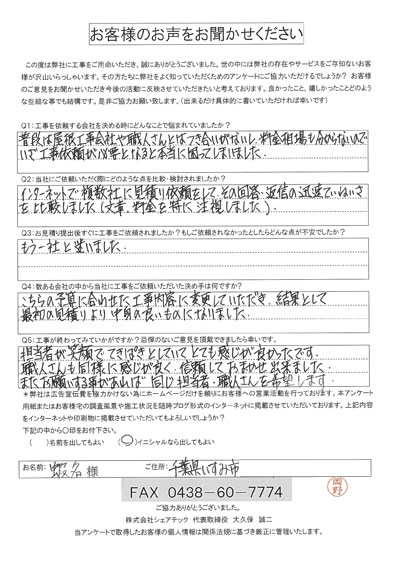 お客様のお声をお聞かせください
この度は弊社に工事をご用命いただき、誠にありがとうございました。世の中には弊社の存在やサービスをご存知ないお客
様が沢山いらっしゃいます。その方たちに弊社をよく知っていただくためのアンケートにご協力いただけるでしょうか? お客様
のご意見をお聞かせいただき今後の活動に反映させていただきたいと考えております。良かったこと、嬉しかったことどのよう
な些細な事でも結構です。是非ご協力お願い致します。(出来るだけ具体的に書いていただければ幸いです)
Q1:工事を依頼する会社を決める時にどんなことで悩まれていましたか?
普段は屋根工事会社や職人さんとはつき合いがないし、料金相場も分からないので
いざ工事依頼が必要となると本当に困ってしまいました。
Q2:当社にご依頼いただく際にどのような点を比較・検討されましたか?
インターネットで複数社に見積り依頼をして、その回答・返信の迅速ていねいさ
を比較しました(文章、料金を特に注視しました)。
Q3:お見積り提出後すぐに工事をご依頼されましたか?もしご依頼されなかったとしたらどんな点が不安でしたか?
もう一社と迷いました。
Q4:数ある会社の中から当社に工事をご依頼いただいた決め手は何ですか?
こちらの予算に合わせた工事内容に変更していただき、結果として
最初の見積りより中身の良いものになりました。
Q5:工事が終わってみていかがですか?忌憚のないご意見を頂戴できましたら幸いです。
担当者が笑顔でてきぱきとしていてとても感じが良かったです。
職人さんも同様に感じが良く、信頼しておまかせ出来ました。
またお願いする事があれば同じ担当者・職人さんを希望します。
*弊社は広告宣伝費を極力かけない為にホームページだけを頼りにお客様への営業活動を行っております。本アンケート
用紙またはお客様宅の調査風景や施工状況を随時ブログ形式のインターネットに掲載させていただいております。上記内容
をインターネットや印刷物に掲載させていただいてもよろしいでしょうか?
下記の中から○印をお付下さい。
( )名前を出してもよい (○)イニシャルなら出してもよい
お名前: 蝦名 様 ご住所: 千葉県いすみ市
FAX 0438-60-7774
岡野
ご協力ありがとうございました。
株式会社シェアテック 代表取締役 大久保 誠二
当アンケートで取得したお客様の個人情報は関係法規に基づき厳正に管理いたします。